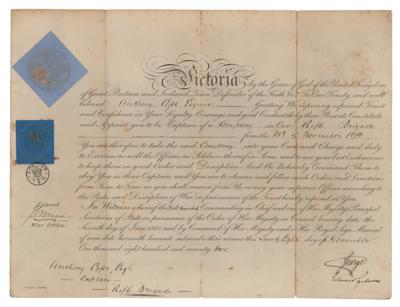 Victoria by the Grace of God of the United Kingdom
of Great Britain and Ireland Queen Defender of the Faith &c To Our Trusty and well
beloved Anthony Esquire Greeting We reposing especial Trust
and Confidence in Your Loyalty Courage and good Conduct do by these Presents Constitute
and Appoint you to be Captain of a Company in Our Rifle Brigade
from the November
You are therefore to take the said Company into your Command and Charge and duly
to Exercise as well the Officers as Soldiers thereof in Arms and to use your best Endeavours
to keep them in good Order and Discipline And We do hereby Command Them to
obey You as their Captain and You are to observe and follow such Orders and Directions
from Time to Time as you shall receive from Us or any your superior Officer according to
the Rules and Discipline of War in pursuance of the Trust hereby reposed in You
In Witness whereof Commander in Chief and one of Her Majesty's Principal
Secretaries of State in pursuance of the Order of Her Majesty in Council bearing date the
Seventh day of June 1862 and by Command of Her Majesty under Her Royal Sign Manual
of even date herewith hereunto subscribe their names this day of
One thousand eight hundred and seventy two
Entered
War Office
George
Anthony Esqr
Captain
Rifle Brigade